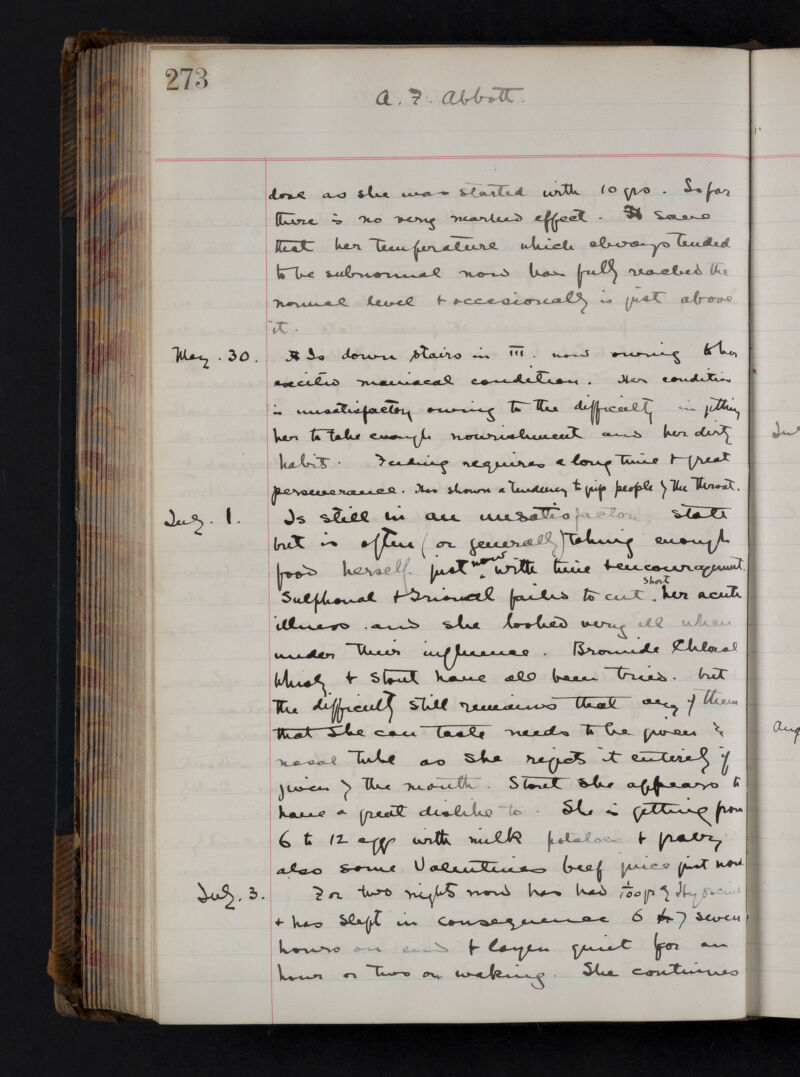 273
A. F. Abbott.
dose as she was started with 10 grs. So far
there is no very marked effect. save
that her temperature which always tended
to be subnormal now has fully reached the
normal level & occasionally is just above
it.
May. 30. Is down stairs in III. now owing to her
excited maniacal condition. Her condition
is unsatisfactory owing to the difficulty in getting
her to take enough nourishment and her dirty
habits. Feeding requires a long time & great
perseverance. Has shown a tendency to grip people by the throat.
July. 1. Is still in an unsatisfactory state
but is often (or generally) taking enough
food herself just now with time & encouragement.
Sulphonal & Trional failed to cut short her acute
illness and she looked very ill when
under their influence. Bromide Chloral
Whisky & Stout have all been tried. but
the difficulty still remains that any of them
that she can taste needs to be given by
nasal tube as she rejects it entirely if
given by the mouth. Stout she appears to
have a great dislike to. She is getting from
6 to 12 eggs with milk potatoes & gravy
also some Valentines beef juice just now
July. 3. For two nights now has had 1/100 gr of Hyoscine
& has slept in consequence 6 or 7 seven
hours on end & layen quiet for an
hour or two on waking. She continues
Jul
Aug